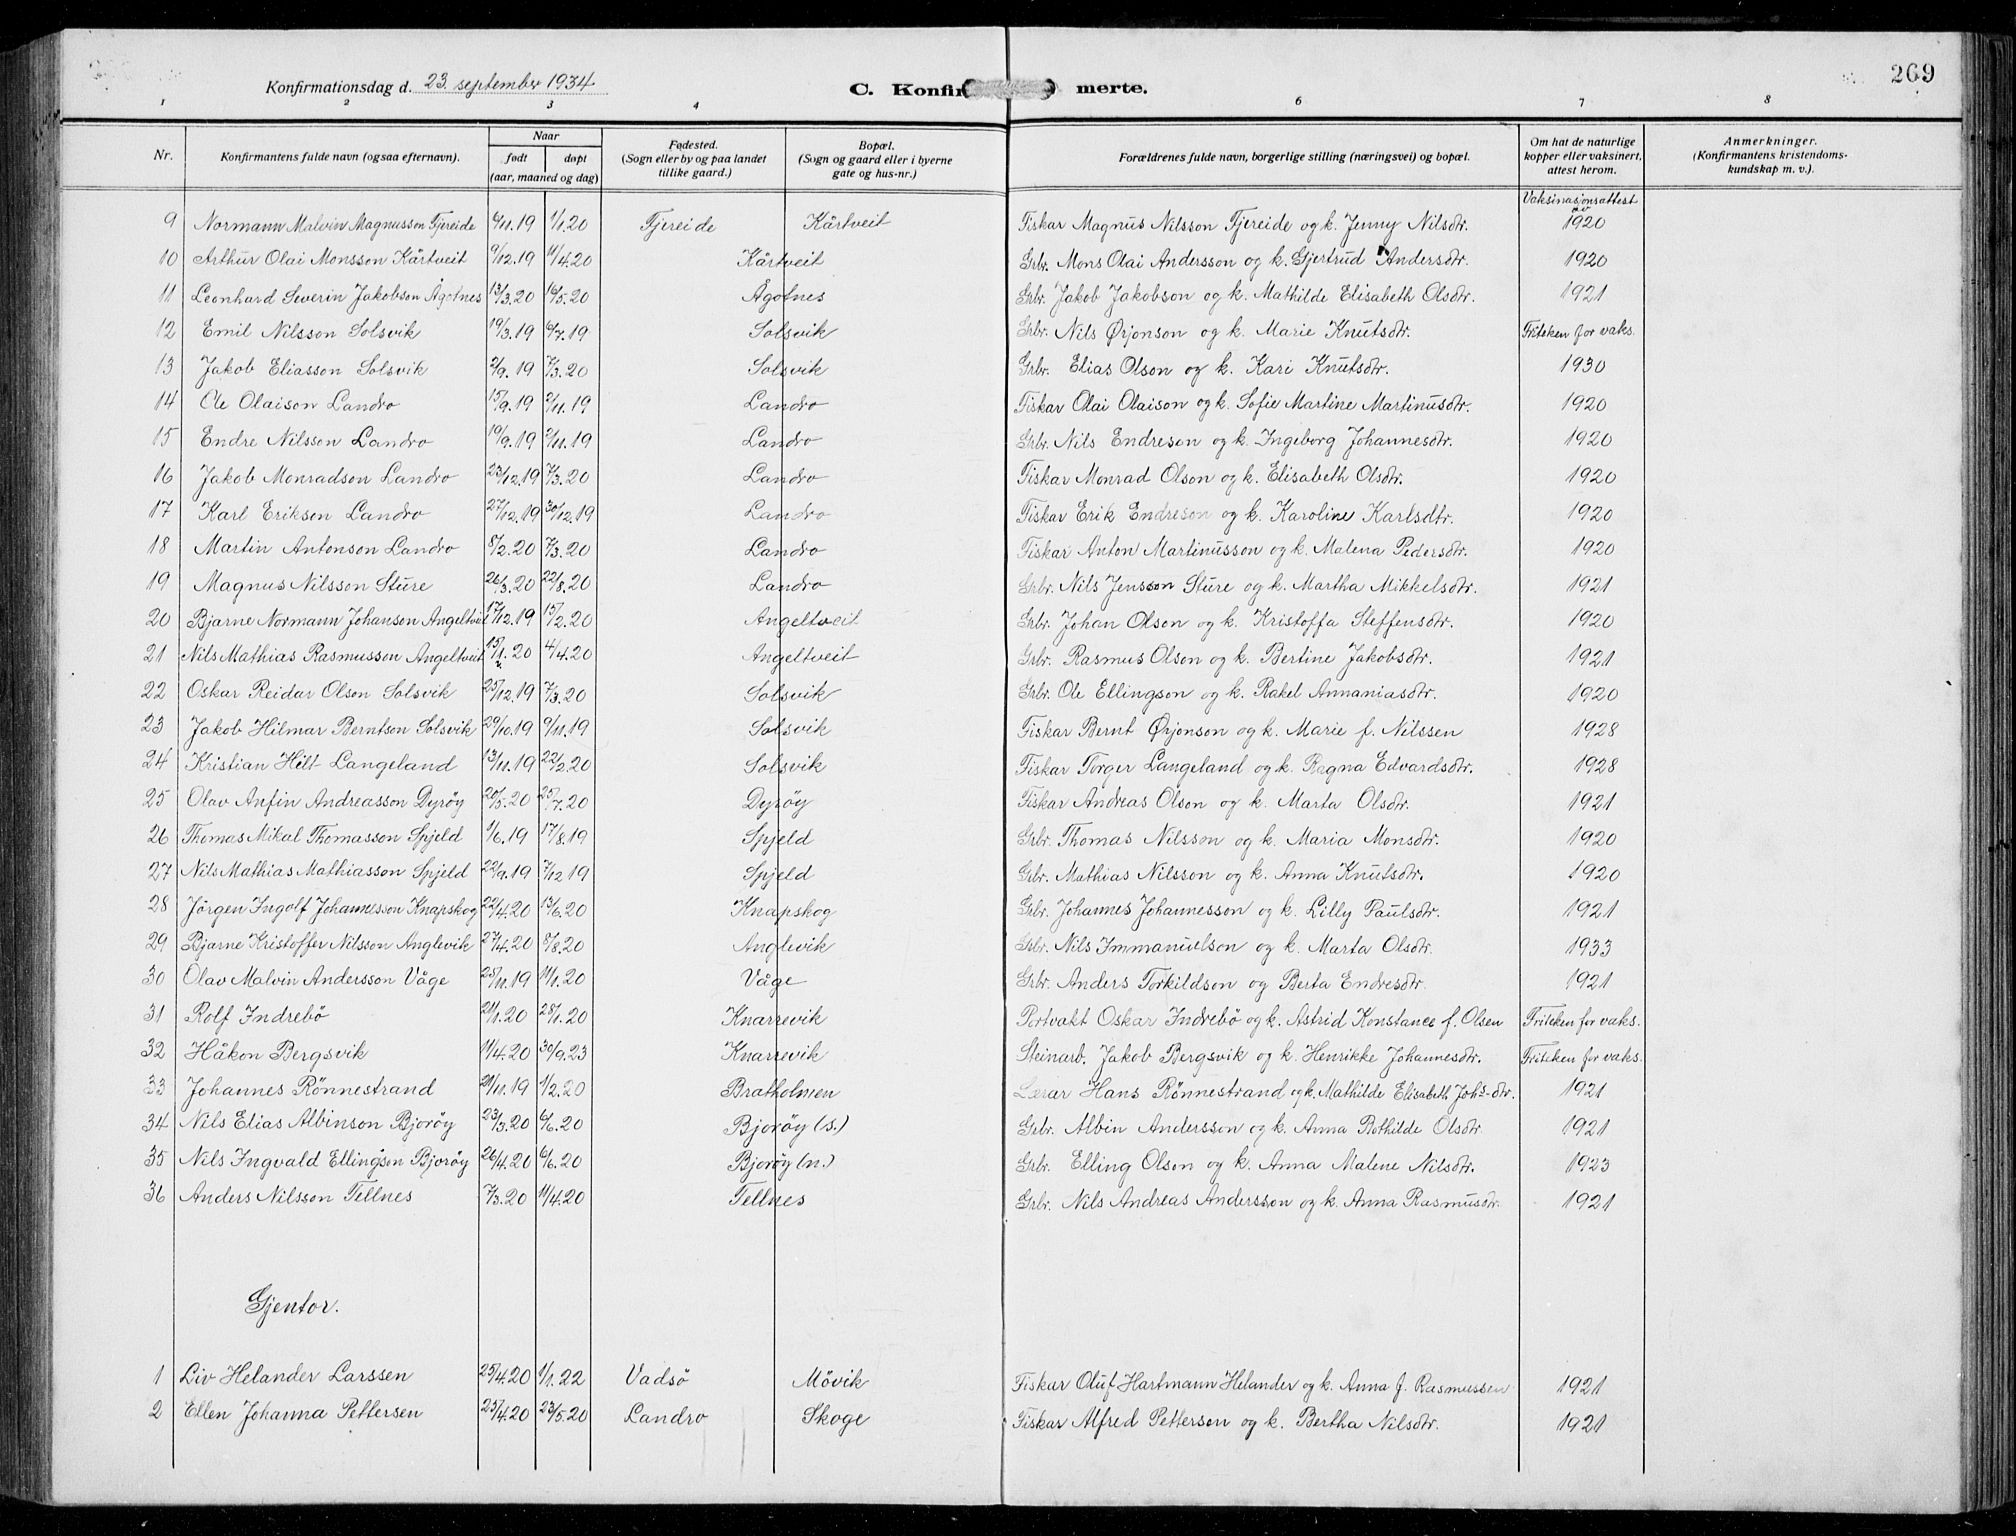 269
Konfirmationsdag d. 23. september 1934
C. Konfir merte.
1 2 3 4 6 7 8
Nr. Konfirmantens fulde navn (ogsaa efternavn). Naar født døpt (aar, maaned og dag) Fødested. (Sogn eller by og paa landet tillike gaard.) Bopæl. (Sogn og gaard eller i byerne gate og hus-nr.) Forældrenes fulde navn, borgerlige stilling (næringsvei) og bopæl. Om hat de naturlige kopper eller vaksinert, attest herom. Anmerkninger. (Konfirmantens kristendomskundskap m. v.).
Vaksinasjonsattest av
9 Normann Malvin Magnusson Fjereide 6/11.19 1/1.20 Fjereide Kårtveit Fiskar Magnus Nilsson Fjereide og k. Jenny Nilsdtr. 1920
10 Arthur Olai Monsson Kårtveit 9/12.19 11/4.20 Kårtveit Grbr. Mons Olai Andersson og k. Gjertrud Andersdtr. 1920
11 Leonhard Severin Jakobson Ågotnes 13/3.20 16/5.20 Ågotnes Grbr. Jakob Jakobson og k. Mathilde Elisabeth Olsdtr. 1921
12 Emil Nilsson Solsvik 19/3.19 6/7.19 Solsvik Grbr. Nils Ørjonson og k. Marie Knutsdtr. Friteken for vaks.
13 Jakob Eliasson Solsvik 2/9.19 7/3.20 Solsvik Grbr. Elias Olson og k. Kari Knutsdtr. 1930
14 Ole Olaison Landro 15/9.19 2/11.19 Landro Fiskar Olai Olaison og k. Sofie Martine Martinusdtr. 1920
15 Endre Nilsson Landro 19/9.19 2/11.19 Landro Grbr. Nils Endreson og k. Ingeborg Johannesdtr. 1920
16 Jakob Monradson Landro 23/12.19 7/3.20 Landro Fiskar Monrad Olson og k. Elisabeth Olsdtr. 1920
17 Karl Erikson Landro 27/12.19 30/12.19 Landro Fiskar Erik Endreson og k. Karoline Karlsdtr. 1920
18 Martin Antonson Landro 8/2.20 7/3.20 Landro Fiskar Anton Martinusson og k. Malena Pedersdtr. 1920
19 Magnus Nilsson Sture 26/3.20 22/8.20 Landro Grbr. Nils Jensson Sture og k. Martha Mikkelsdtr. 1921
20 Bjarne Normann Johanson Angeltveit 17/12.19 15/2.20 Angeltveit Grbr. Johan Olson og k. Kristoffa Steffensdtr. 1920
21 Nils Mathias Rasmusson Angeltveit 15/1.20 4/4.20 Angeltveit Grbr. Rasmus Olson og k. Bertine Jakobsdtr. 1921
22 Oskar Reidar Olson Solsvik 25/12.19 7/3.20 Solsvik Grbr. Ole Ellingson og k. Rakel Annaniasdtr. 1920
23 Jakob Hilmar Berntson Solsvik 29/10.19 9/11.19 Solsvik Fiskar Bernt Ørjonson og k. Marie f. Nilssen 1928
24 Kristian Hilt Langeland 13/11.19 22/2.20 Solsvik Fiskar Torger Langeland og k. Ragna Edvardsdtr. 1928
25 Olav Anfin Andreasson Dyrøy 20/5.20 25/7.20 Dyrøy Fiskar Andreas Olson og k. Marta Olsdtr. 1921
26 Thomas Mikal Thomasson Spjeld 1/6.19 17/8.19 Spjeld Grbr. Thomas Nilsson og k. Maria Monsdtr. 1920
27 Nils Mathias Mathiasson Spjeld 22/9.19 7/12 19 Spjeld Grbr. Mathias Nilsson og k. Anna Knutsdtr. 1920
28 Jörgen Ingolf Johannesson Knapskog 22/4.20 13/6.20 Knapskog Grbr. Johannes Johannesson og k. Lilly Paulsdtr. 1921
29 Bjarne Kristoffer Nilsson Anglevik 27/4.20 8/8.20 Anglevik Grbr. Nils Immanuelson og k. Marta Olsdtr. 1933
30 Olav Malvin Andersson Våge 25/11.19 11/1.20 Våge Grbr. Anders Torkildson og Berta Endresdtr. 1921
31 Rolf Indrebö 21/1.20 28/1.20 Knarrevik Portvakt Oskar Indrebö og k. Astrid Konstance f. Olsen Friteken for vaks.
32 Håkon Bergsvik 11/4.20 30/9.23 Knarrevik Steinarb. Jakob Bergsvik og k. Henrikke Johannesdtr. Friteken for vaks.
33 Johannes Rönnestrand 21/11.19 1/2.20 Bratholmen Lærar Hans Rönnestrand og k. Mathilde Elisabeth Johs-dtr. 1921
34 Nils Elias Albinson Bjorøy 23/3.20 6/6.20 Bjorøy (s.) Grbr. Albin Andersson og k. Anna Bothilde Olsdtr. 1921
35 Nils Ingvald Ellingson Bjorøy 26/4.20 6/6.20 Bjorøy (n.) Grbr. Elling Olson og k. Anna Malene Nilsdtr. 1923
36 Anders Nilsson Tellnes 7/3.20 11/4.20 Tellnes Grbr. Nils Andreas Andersson og k. Anna Rasmusdtr. 1921
Gjentor.
1 Liv Helander Larssen 25/4.20 1/1.22 Vadsö Mövik Fiskar Oluf Hartmann Helander og k. Anna f. Rasmussen 1921
2 Ellen Johanna Pettersen 25/4.20 23/5.20 Landro Skoge Fiskar Alfred Petterson og k. Bertha Nilsdtr. 1921